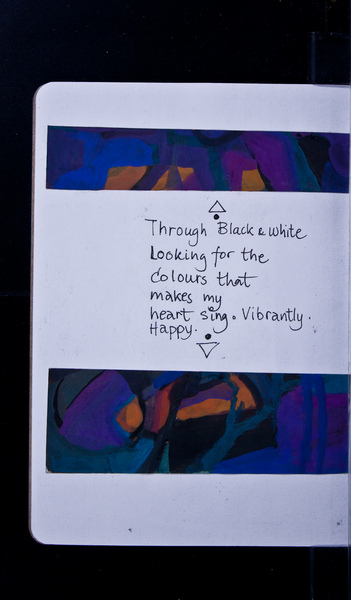 Through Black & White
Looking for the
colours that
makes my
heart sing. Vibrantly.
Happy.